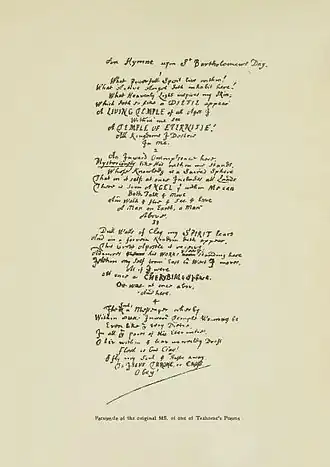 An Hymne upon St Bartholomews Day.
1
What Powerfull Spirit lives within!
What Active Angel doth inhabit here!
What Heavenly Light inspires my Skin,
Which doth so like a DIETIE appear
A LIVING TEMPLE of all Ages I
Within me see
A TEMPLE of ETERNITIE!
All Kingdoms I Descrie
In Me.
2
An Inward Omnipresence here,
Mysteriously like His within me Stands;
Whose Knowledg is a Sacred Sphere
That in it self at once Includes all Lands
There is som ANGEL yt within me can
Both Talk & Move
And Walk & flie & See & Love
A Man on Earth, a Man
Above.
3
Dull Walls of Clay my SPIRIT leavs
And in a forrein Kingdom doth appear,
This Great Apostle it receivs,
Admires his Works Standing here
my Self from East to West I move,
As if I were
At once a CHERUBIM & Sphere,
Or was at once abov,
And here.
4
The Souls a Messenger wherby
Within our Inward Temple We may be
Even like ye very Dietie,
In all ye parts of his Eternitie.
O liv within & leav unweildy Dross
Flesh is but Clay!
O fly my Soul & haste away
To JESUS THRONE, or CROSS
Obey!
Facsimile of the original MS. of one of Traherne's Poems